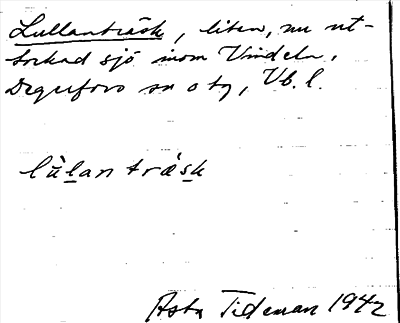 Lullanträsk, liten, nu ut-
torkad sjö inom Vindeln,
Degerfors sn o tg, Vb. l.
lùlan trä́sk
Asta Tideman 1942